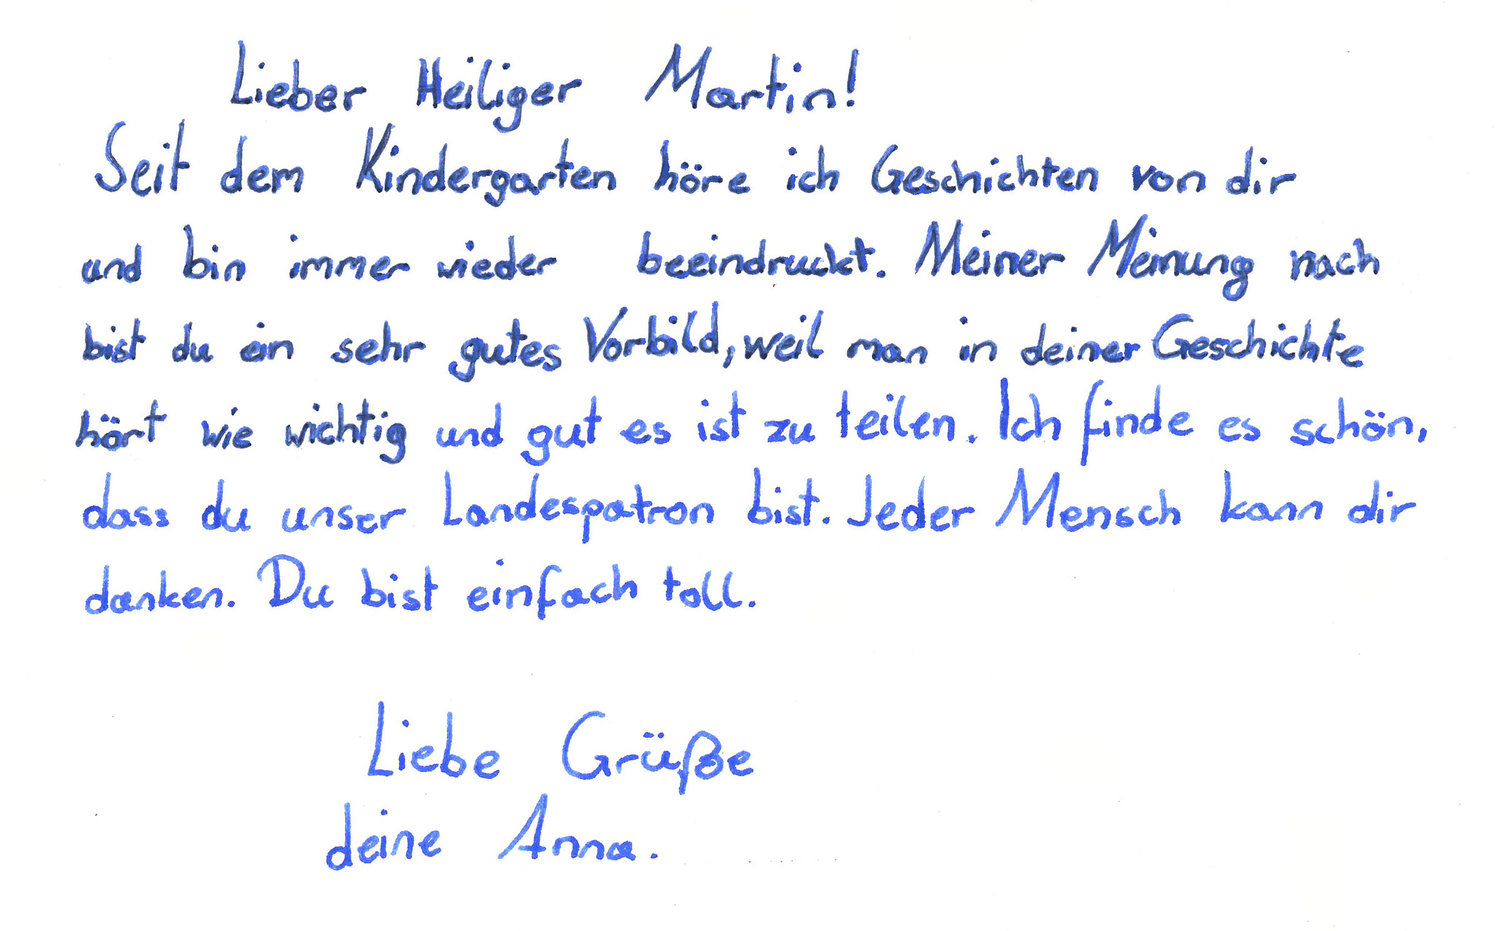 Lieber Heiliger Martin!
Seit dem Kindergarten höre ich Geschichten von dir
und bin immer wieder beeindruckt. Meiner Meinung nach
bist du ein sehr gutes Vorbild, weil man in deiner Geschichte
hört wie wichtig und gut es ist zu teilen. Ich finde es schön,
dass du unser Landespatron bist. Jeder Mensch kann dir
danken. Du bist einfach toll.
Liebe Grüße
deine Anna.